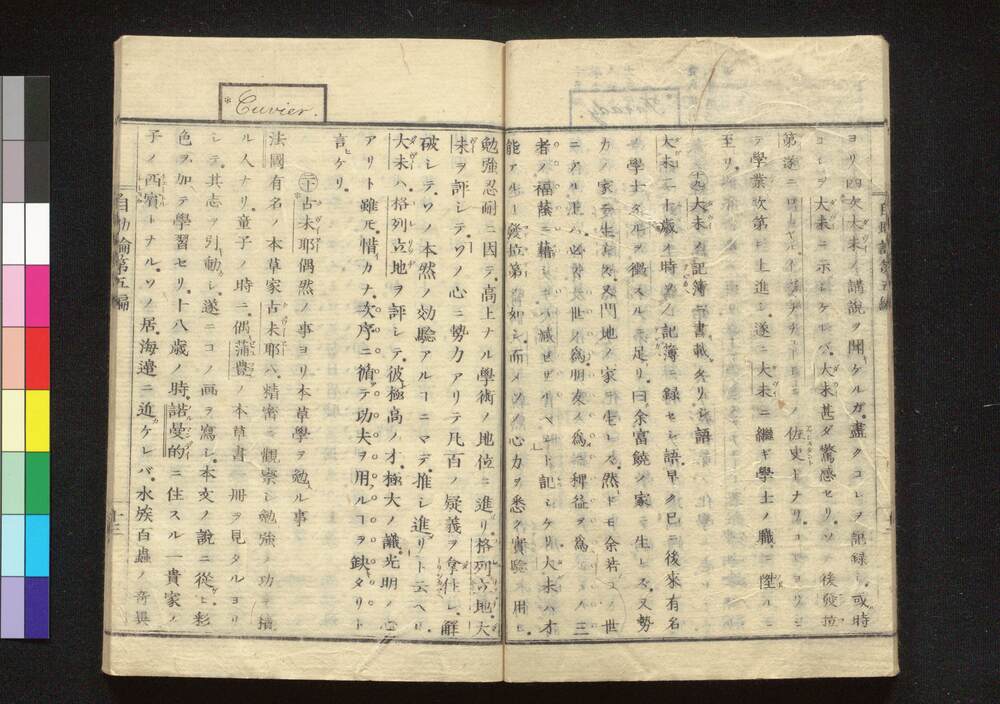 ヨリ四次大未ノ講説ヲ聞ケルガ。盡クコレヲ記録シ。或時
コレヲ大未ニ示シケレバ。大未甚ダ驚感セリ。ソノ後發拉
第遂ニ ノ佐史トナリ。コレヨリシ
テ學業次第ニ上進シ。遂ニ大未ニ繼ギ學士ノ職ニ陞ルニ
至リ。
十九 大未ノ記簿ニ書載タリシ語
大未二十歳ノ時ソノ記簿ニ録セシ語。早ク已ニ後來有名
ノ學士タルヲ徴スルニ足リ。曰余富饒ノ家ニ生レズ。又勢
力ノ家ニ生レズ。又門地ノ家ニ生レズ。然ドモ余若コノ世
ニアル上ハ。必 世ノ為朋友ノ為。裨益ヲ為 三
者ノ福蔭ニ藉 減ゼザルベシト記シケリ。大未ハ才
能アルヿ發拉第ノ如シ。而メソノ心力ヲ悉ク實驗ニ用ヒ。
自助論第五編
*Cuvier.
勉強忍耐ニ因テ。高上ナル學術ノ地位ニ進リ。格列立地。大
未ヲ評シテ。ソノ心ニ勢力アリテ凡百ノ疑義ヲ拿住シ。解
破シテ。ソノ本然ノ効驗アルヿニマデ。推シ進リト云ヘリ。
大未ハ格列立地ヲ評シテ。彼極高ノ才。極大ノ識。光明ノ心
アリト雖モ。惜カナ。次序ニ循テ功夫ヲ用ルヿヲ缺タリト
言ケリ。
二十 古未耶偶然ノ事ヨリ本草學ヲ勉ル事
法國有名ノ本草家古未耶ハ。精密ニ觀察シ勉強ノ功ヲ積
ル人ナリ。童子ノ時ニ。偶蒲豊ノ本草書一冊ヲ見タルヨリ
シテ。其志ヲ引動シ。遂ニコノ画ヲ寫シ。本文ノ説ニ從ヒ彩
色ヲ加テ學習セリ。十八歳ノ時。諾曼的ニ住スル一貴家ノ
子ノ西賓トナル。ソノ居。海邉ニ近ケレバ。水族百蟲ノ奇異
自助論第五編
十三